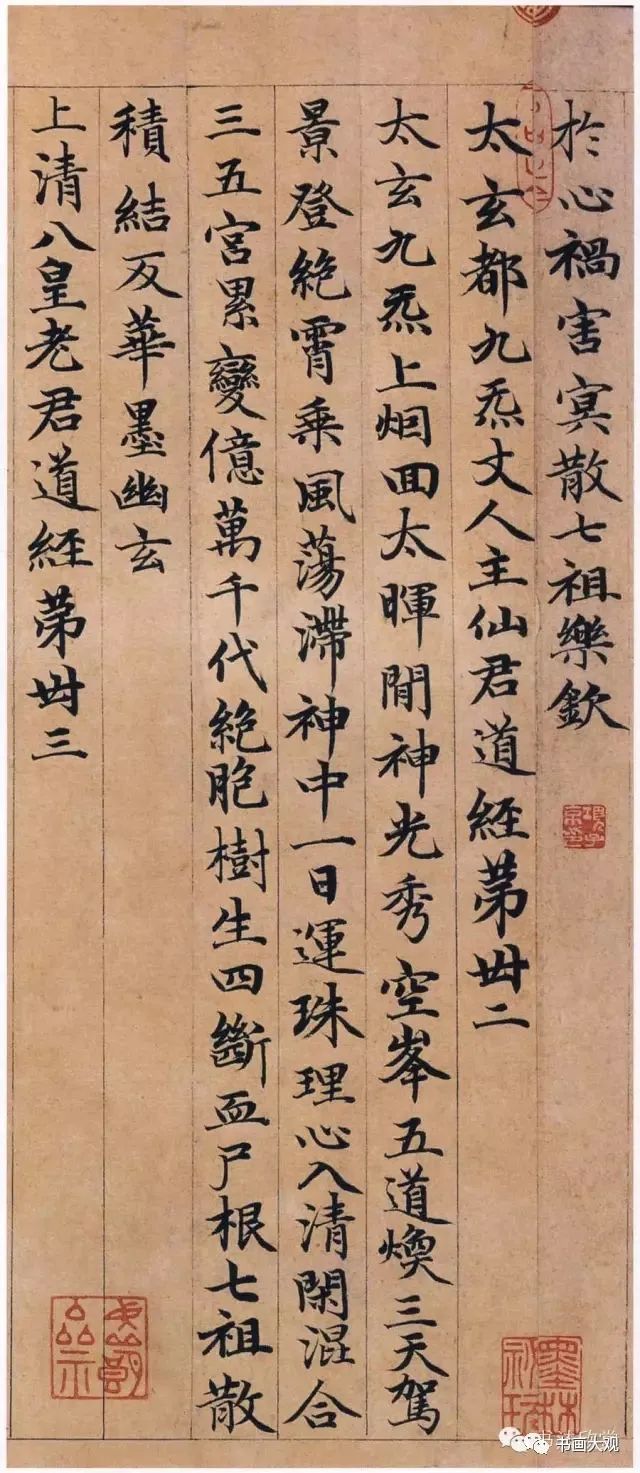 於心禍害冥散七祖樂欽
太玄都九炁丈人主仙君道經苐卌二
太玄九炁上烟回太暉閒神光秀空峯五道煥三天駕
景登絶霄乗風蕩滯神中一日運珠理心入清閑混合
三五宮累變億萬千代絶胞樹生四斷血尸根七祖散
積結反華墨幽玄
上清八皇老君道經苐卌三
书画大观